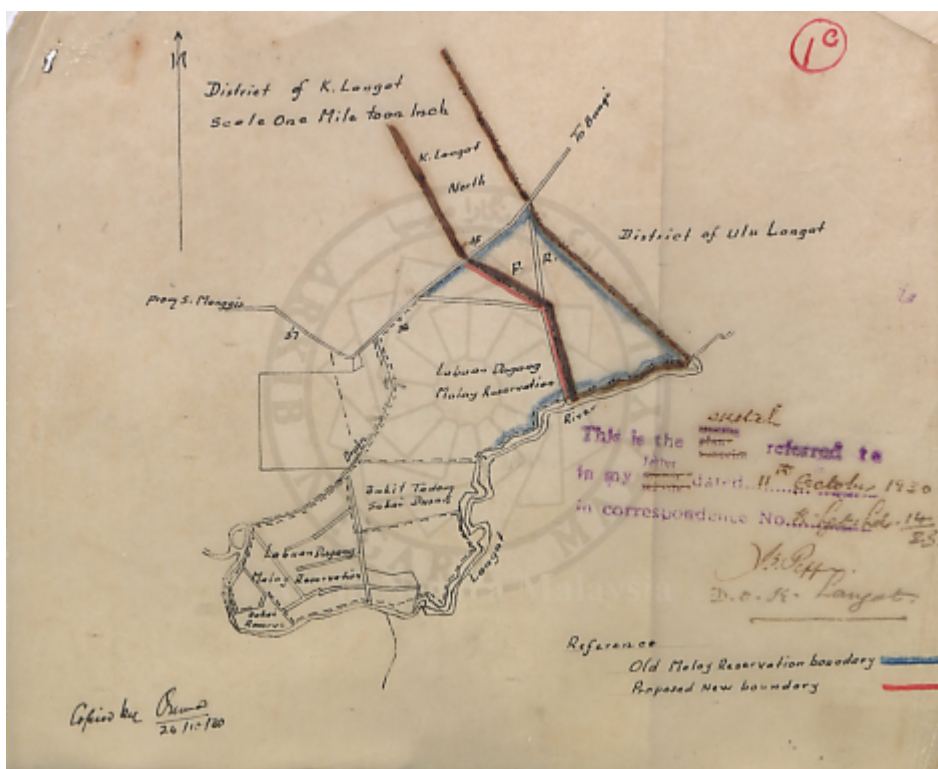 1c
N
District of K. Langat
Scale One Mile to an Inch
K. Langat
North
To Bangi
District of Ulu Langat
F. R.
From S. Manggis
37
36
Labuan Dagang
Malay Reservation
River
Langat
Bukit Tadom
Sakai
Labuan Dagang
Malay Reservation
Sakai
Reserve
sketch
This is the plan referred to
in my letter dated 11th October 1920
in correspondence No. 14/23
D.O. K. Langat.
Reference
Old Malay Reservation boundary
Proposed New boundary
Copied by
26/10/20